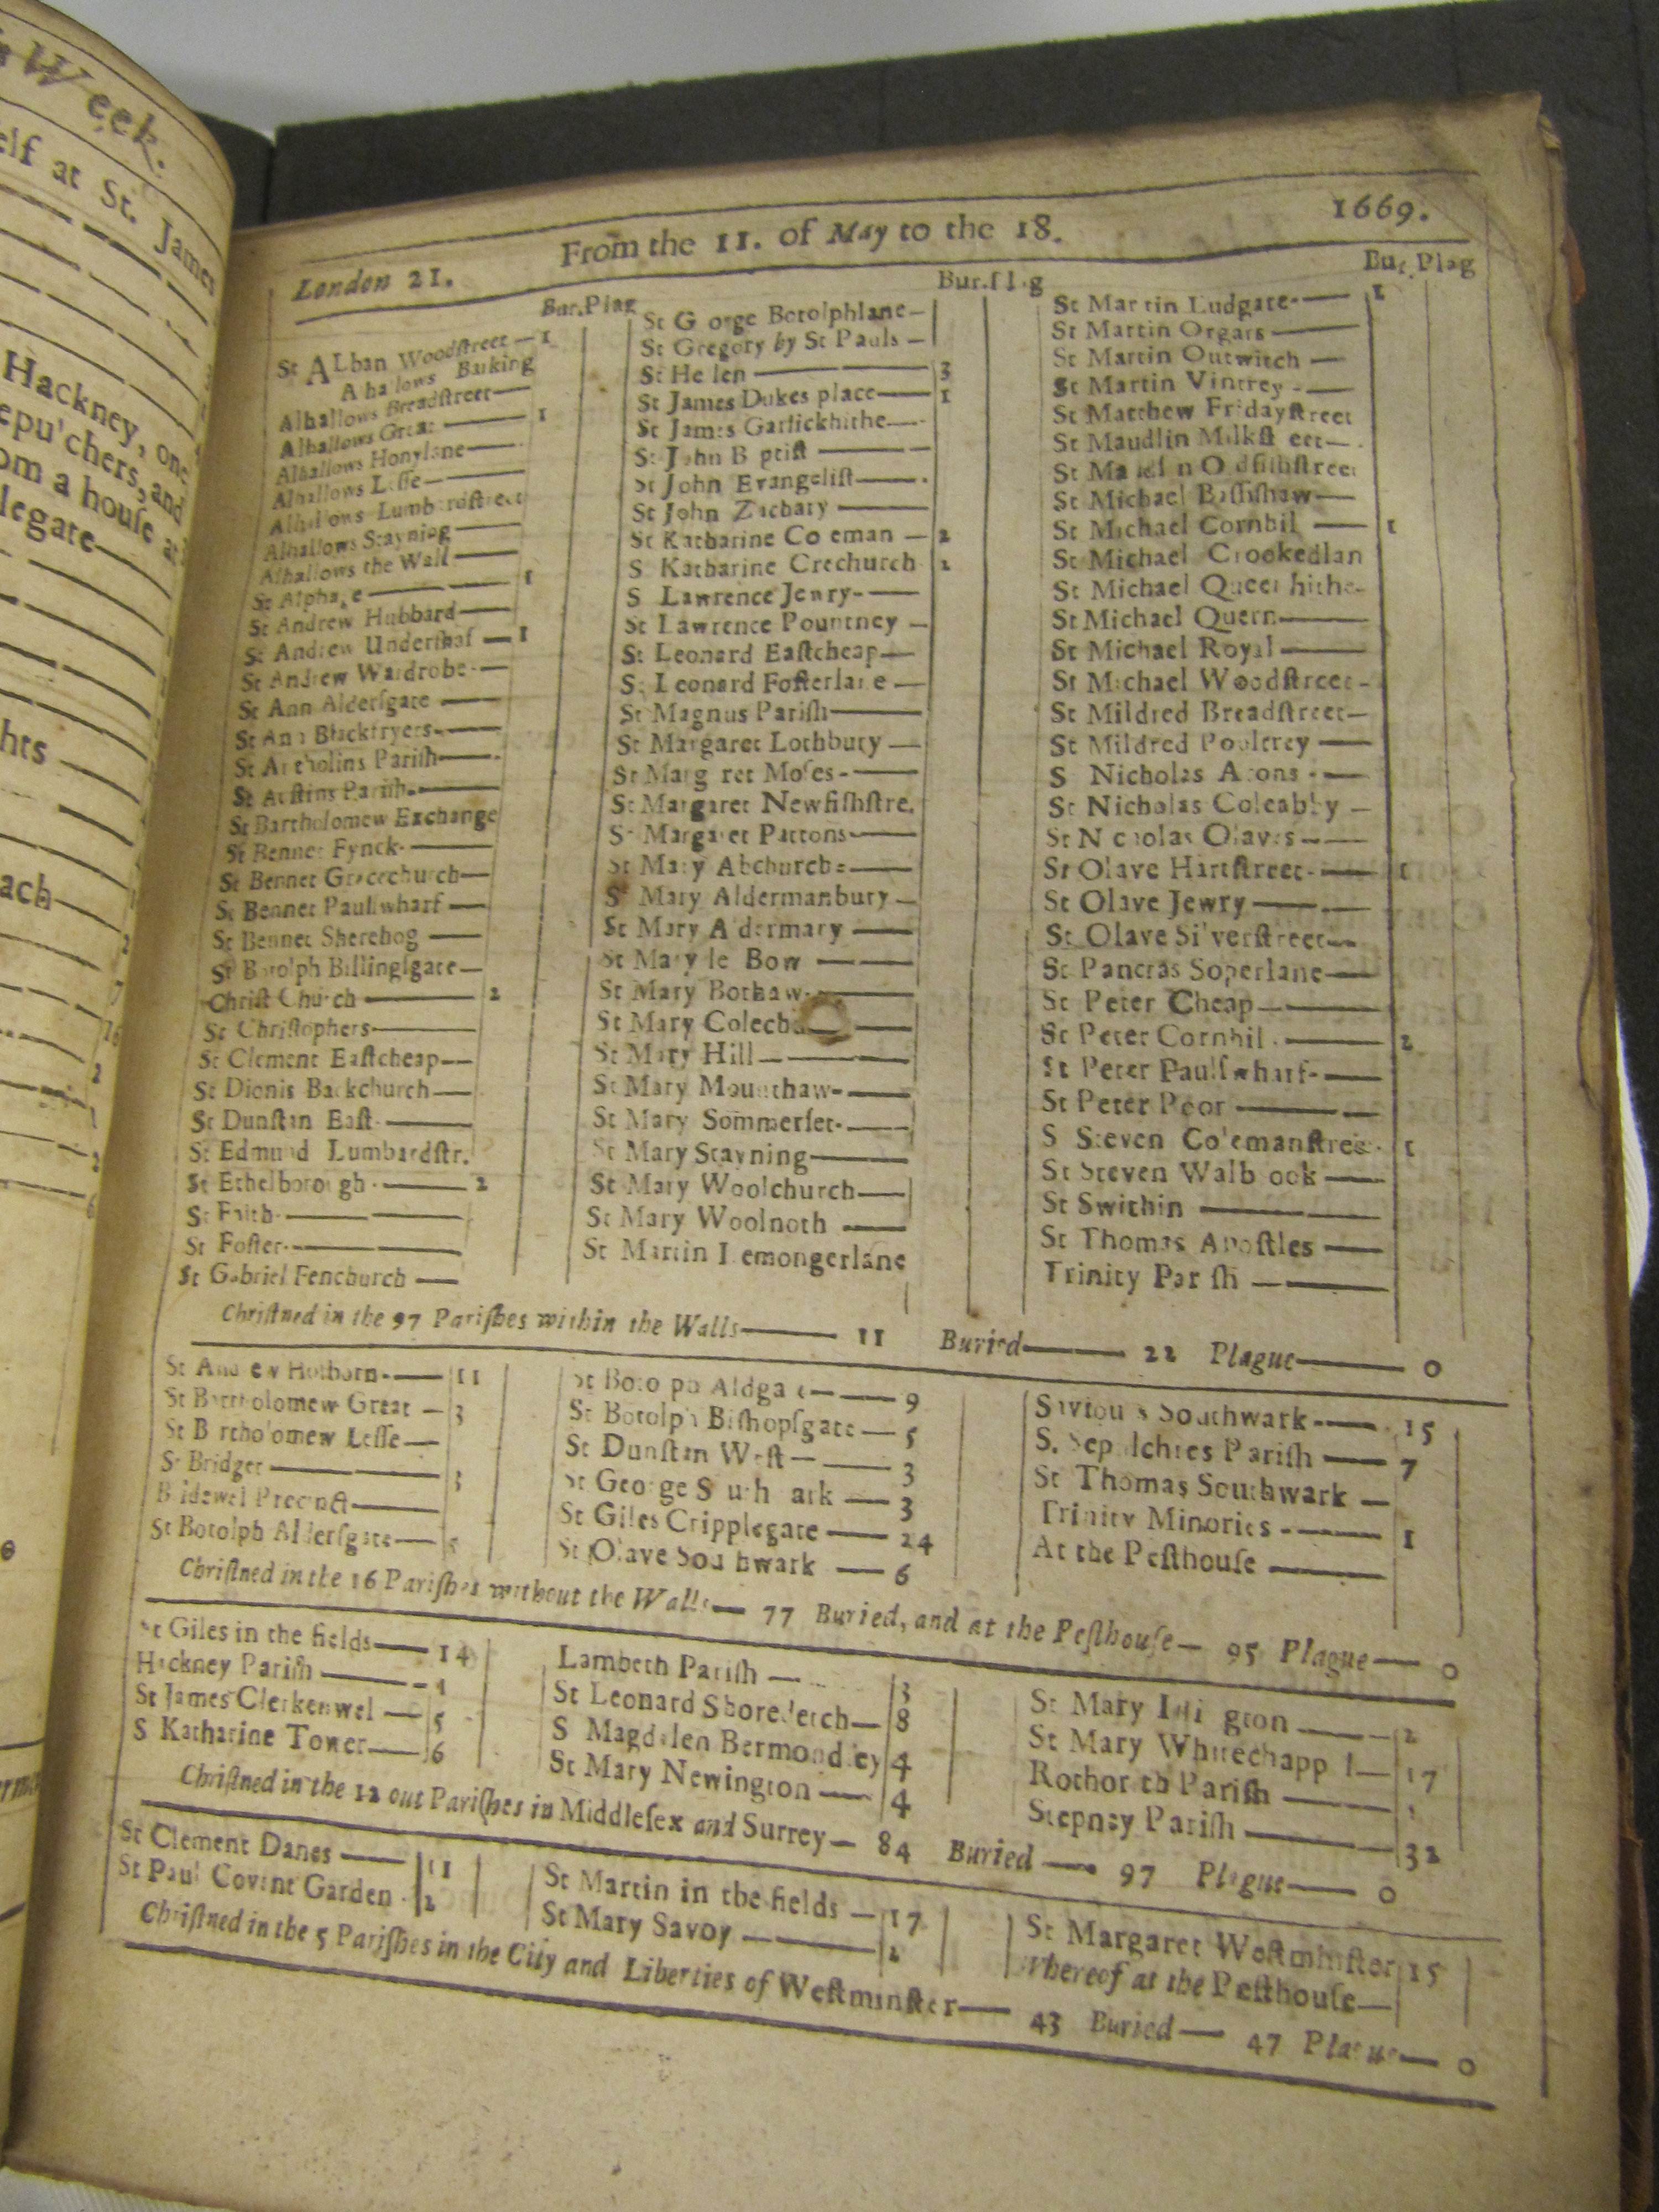 Week.
elf at St. James
Hackney, one
epu'chers, and
om a houſe at
legate
hts
ach
London 21. From the 11. of May to the 18. 1669.
Bur. Plag
St ALban Woodſtreet — 1
Alhallows Barking
Alhallows Breadſtreet —
Alhallows Great — 1
Alhallows Honylane —
Alhallows Leſſe —
Alhallows Lumbardſtreet
Alhallows Stayning —
Alhallows the Wall —
St Alphage — 1
St Andrew Hubbard —
St Andrew Underſhaf — 1
St Andrew Wardrobe —
St Ann Alderſgate —
St Ann Blackfryers —
St Antholins Pariſh —
St Auſtins Pariſh —
St Bartholomew Exchange
St Bennet Fynck —
St Bennet Gracechurch —
St Bennet Paulſwharf —
St Bennet Sherehog —
St Botolph Billingſgate —
Chriſt Church — 2
St Chriſtophers —
St Clement Eaſtcheap —
St Dionis Backchurch —
St Dunſtan Eaſt —
St Edmund Lumbardſtr.
St Ethelborough — 2
St Faith —
St Foſter —
St Gabriel Fenchurch —
Bur. Plag
St George Botolphlane —
St Gregory by St Pauls —
St Hellen — 3
St James Dukes place — 1
St James Garlickhithe —
St John Baptiſt —
St John Evangeliſt —
St John Zachary —
St Katharine Coleman — 2
St Katharine Crechurch 2
St Lawrence Jewry —
St Lawrence Pountney —
St Leonard Eaſtcheap —
St Leonard Foſterlane —
St Magnus Pariſh —
St Margaret Lothbury —
St Margaret Moſes —
St Margaret Newfiſhſtre.
St Margaret Pattons —
St Mary Abchurch —
St Mary Aldermanbury —
St Mary Aldermary —
St Mary le Bow —
St Mary Bothaw —
St Mary Colech —
St Mary Hill —
St Mary Mounthaw —
St Mary Sommerſet —
St Mary Stayning —
St Mary Woolchurch —
St Mary Woolnoth —
St Martin Iremongerlane
Bur. Plag
St Martin Ludgate — 1
St Martin Orgars —
St Martin Outwitch —
St Martin Vintrey —
St Matthew Fridayſtreet
St Maudlin Milkſtreet —
St Maudlin Oldfiſhſtreet
St Michael Baſſiſhaw —
St Michael Cornhil — 1
St Michael Crookedlan
St Michael Queenhithe —
St Michael Quern —
St Michael Royal —
St Michael Woodſtreet —
St Mildred Breadſtreet —
St Mildred Poultrey —
St Nicholas Acons —
St Nicholas Coleabby —
St Nicholas Olaves —
St Olave Hartſtreet — 1
St Olave Jewry —
St Olave Silverſtreet —
St Pancras Soperlane —
St Peter Cheap —
St Peter Cornhil — 2
St Peter Paulſwharf —
St Peter Poor —
St Steven Colemanſtree 1
St Steven Walbrook —
St Swithin —
St Thomas Apoſtles —
Trinity Pariſh —
Chriſtned in the 97 Pariſhes within the Walls — 11 Buried — 22 Plague — 0
St Andrew Holborn — 11
St Bartholomew Great — 3
St Bartholomew Leſſe —
St Bridget — 3
Bridewel Precinct —
St Botolph Alderſgate —
St Botolph Aldgate — 9
St Botolph Biſhopſgate — 5
St Dunſtan Weſt — 3
St George Southwark — 3
St Giles Cripplegate — 24
St Olave Southwark — 6
Saviours Southwark — 15
S. Sepulchres Pariſh — 7
St Thomas Southwark —
Trinity Minories — 1
At the Peſthouſe —
Chriſtned in the 16 Pariſhes without the Walls — 77 Buried, and at the Peſthouſe — 95 Plague — 0
St Giles in the fields — 14
Hackney Pariſh — 1
St James Clerkenwel — 5
St Katharine Tower — 6
Lambeth Pariſh — 3
St Leonard Shoreditch — 8
St Magdalen Bermondſey 4
St Mary Newington — 4
St Mary Iſlington — 2
St Mary Whitechappel — 17
Rothorith Pariſh — 1
Stepney Pariſh — 32
Chriſtned in the 12 out Pariſhes in Middleſex and Surrey — 84 Buried — 97 Plague — 0
St Clement Danes — 11
St Paul Covent Garden 2
St Martin in the fields — 17
St Mary Savoy — 2
St Margaret Weſtminſter 15
Whereof at the Peſthouſe —
Chriſtned in the 5 Pariſhes in the City and Liberties of Weſtminſter — 43 Buried — 47 Plague — 0